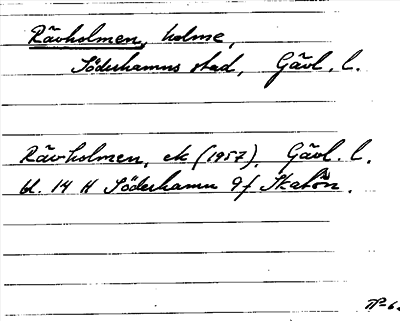 Rävholmen, holme,
Söderhamns stad, Gävl. l.
Rävholmen, ek (1957), Gävl. l.
bl. 14 H Söderhamn 9f Skatön.